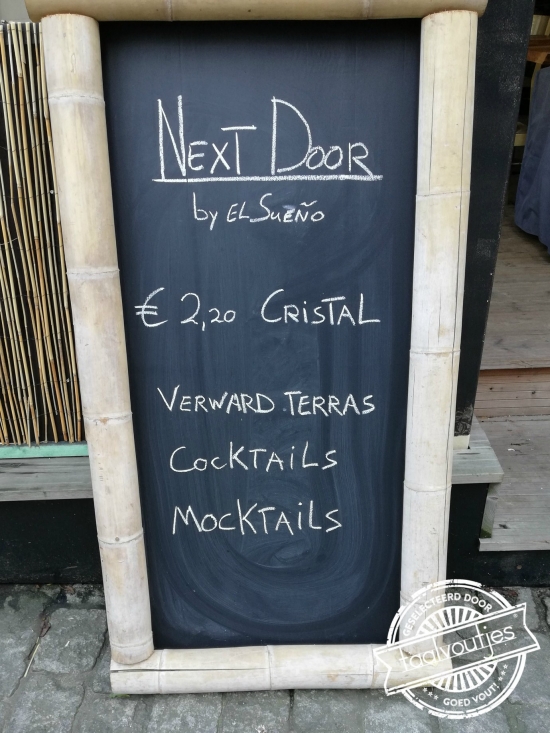 NEXT DOOR
by EL SUEÑO
€ 2,20 CRISTAL
VERWARD TERRAS
COCKTAILS
MOCKTAILS
GESELECTEERD DOOR
taalvoutjes
GOED VOUT!